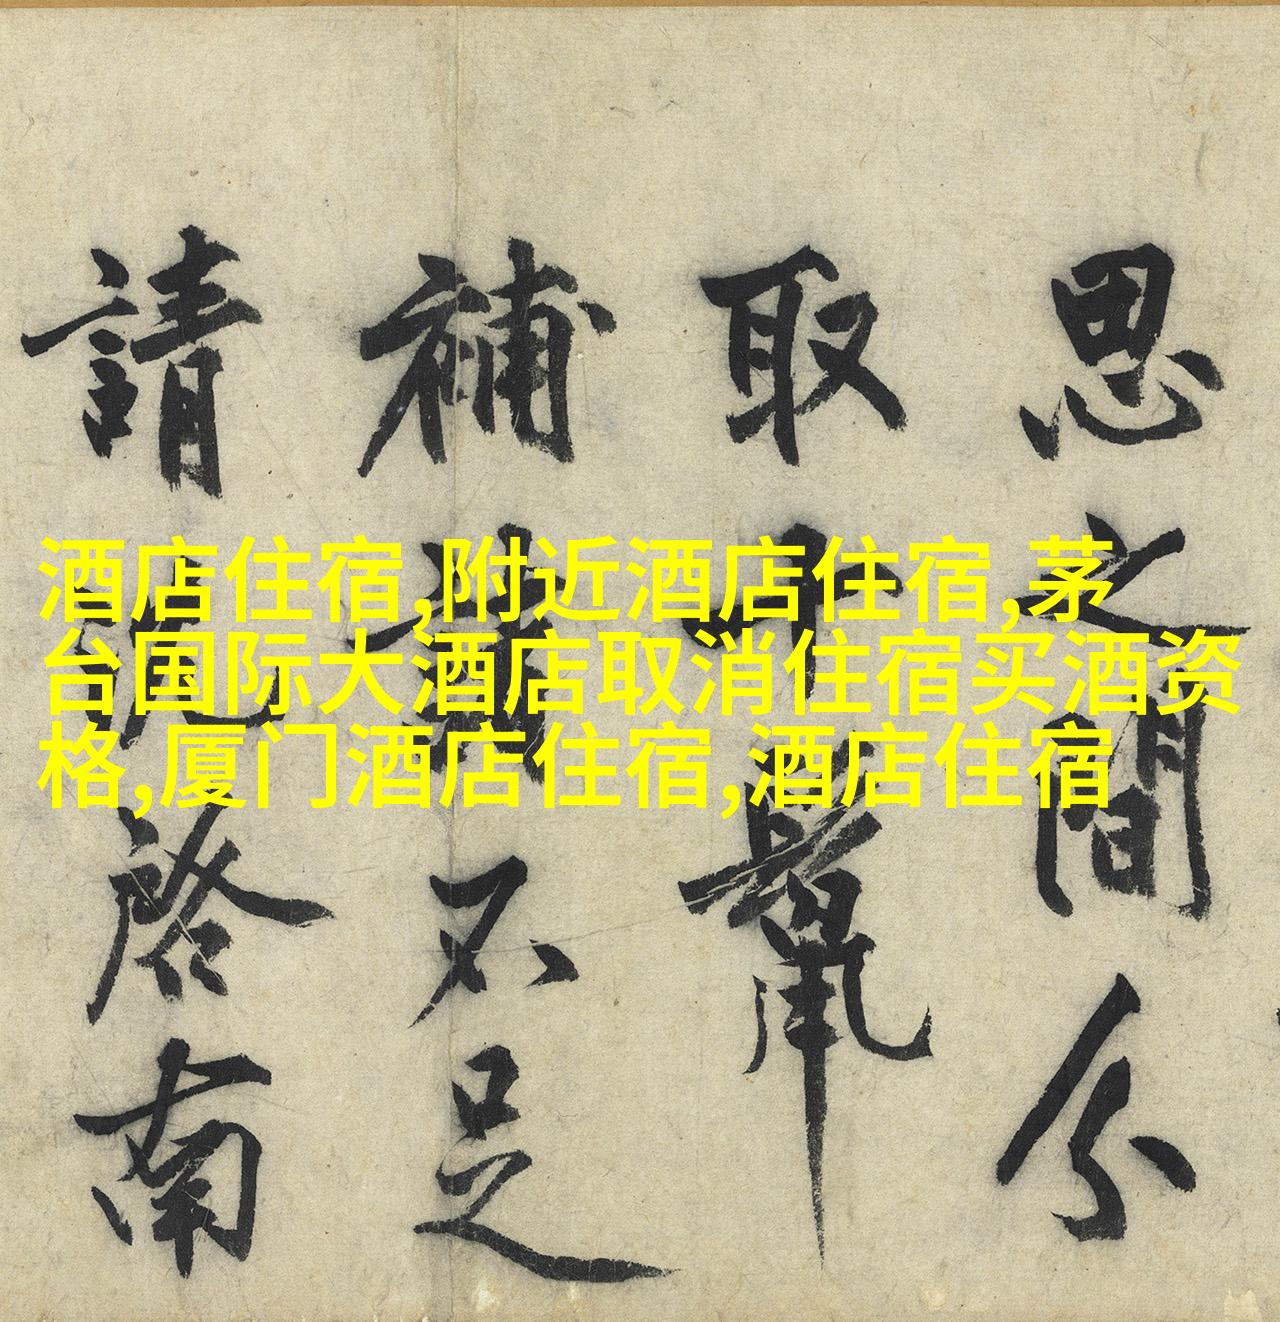 思之間分
取
補不足
請啓南
酒店住宿,附近酒店住宿,茅
台国际大酒店取消住宿买酒资
格,厦门酒店住宿,酒店住宿